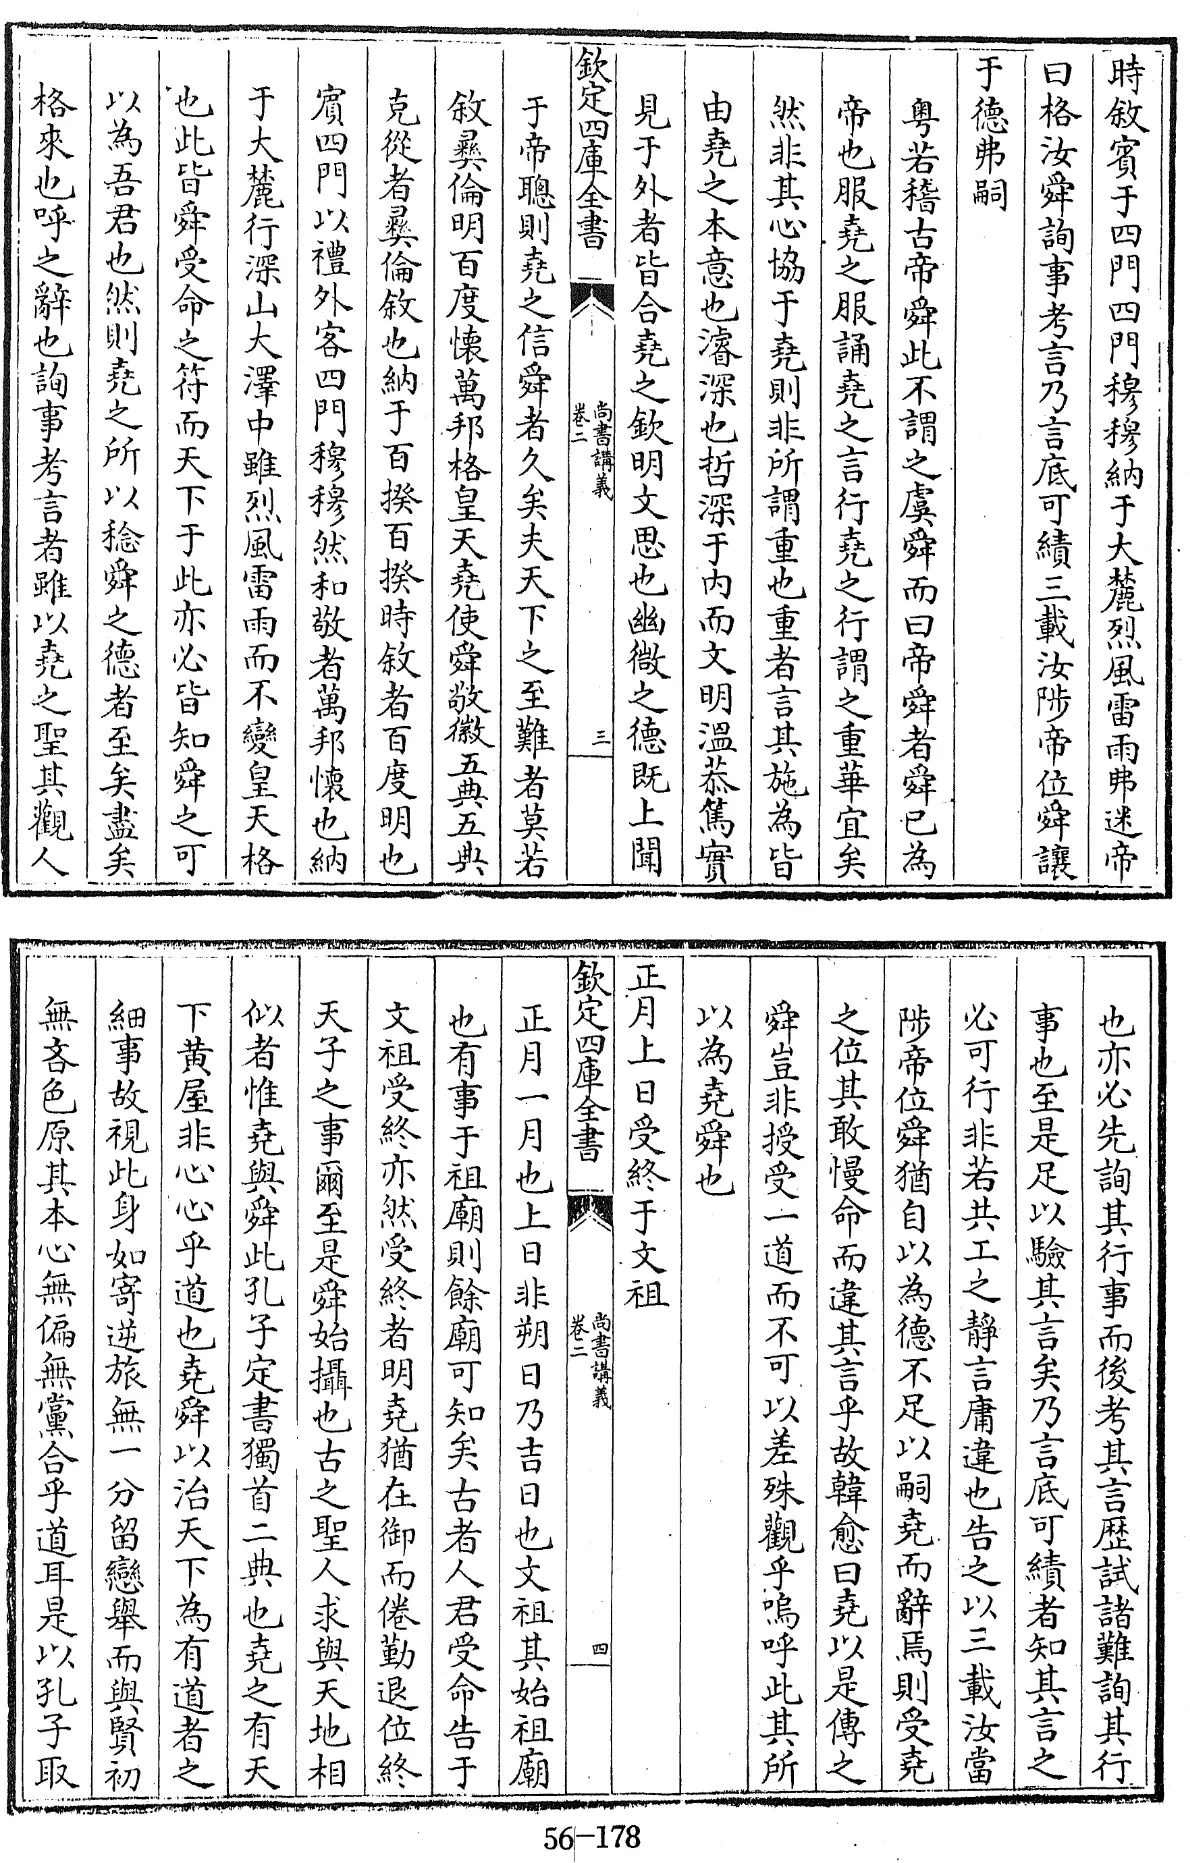 時敘賓于四門四門穆穆納于大麓烈風雷雨弗迷帝
曰格汝舜詢事考言乃言底可績三載汝陟帝位舜讓
于德弗嗣
粤若稽古帝舜此不謂之虞舜而曰帝舜者舜已為
帝也服堯之服誦堯之言行堯之行謂之重華宜矣
然非其心協于堯則非所謂重也重者言其施為皆
由堯之本意也濬深也哲深于内而文明溫恭篤實
見于外者皆合堯之欽明文思也幽微之德既上聞
欽定四庫全書
尚書講義
卷二
三
于帝聰則堯之信舜者久矣夫天下之至難者莫若
敘彝倫明百度懷萬邦格皇天堯使舜敬徽五典五典
克從者彝倫敘也納于百揆百揆時敘者百度明也
賓四門以禮外客四門穆穆然和敬者萬邦懷也納
于大麓行深山大澤中雖烈風雷雨而不變皇天格
也此皆舜受命之符而天下于此亦必皆知舜之可
以為吾君也然則堯之所以稔舜之德者至矣盡矣
格來也呼之辭也詢事考言者雖以堯之聖其觀人
也亦必先詢其行事而後考其言歴試諸難詢其行
事也至是足以驗其言矣乃言底可績者知其言之
必可行非若共工之靜言庸違也告之以三載汝當
陟帝位舜猶自以為德不足以嗣堯而辭焉則受堯
之位其敢慢命而違其言乎故韓愈曰堯以是傳之
舜豈非授受一道而不可以差殊觀乎嗚呼此其所
以為堯舜也
正月上日受終于文祖
欽定四庫全書
尚書講義
卷二
四
正月一月也上日非朔日乃吉日也文祖其始祖廟
也有事于祖廟則餘廟可知矣古者人君受命告于
文祖受終亦然受終者明堯猶在御而倦勤退位終
天子之事爾至是舜始攝也古之聖人求與天地相
似者惟堯與舜此孔子定書獨首二典也堯之有天
下黄屋非心心乎道也堯舜以治天下為有道者之
細事故視此身如寄逆旅無一分留戀舉而與賢初
無吝色原其本心無偏無黨合乎道耳是以孔子取
56-178